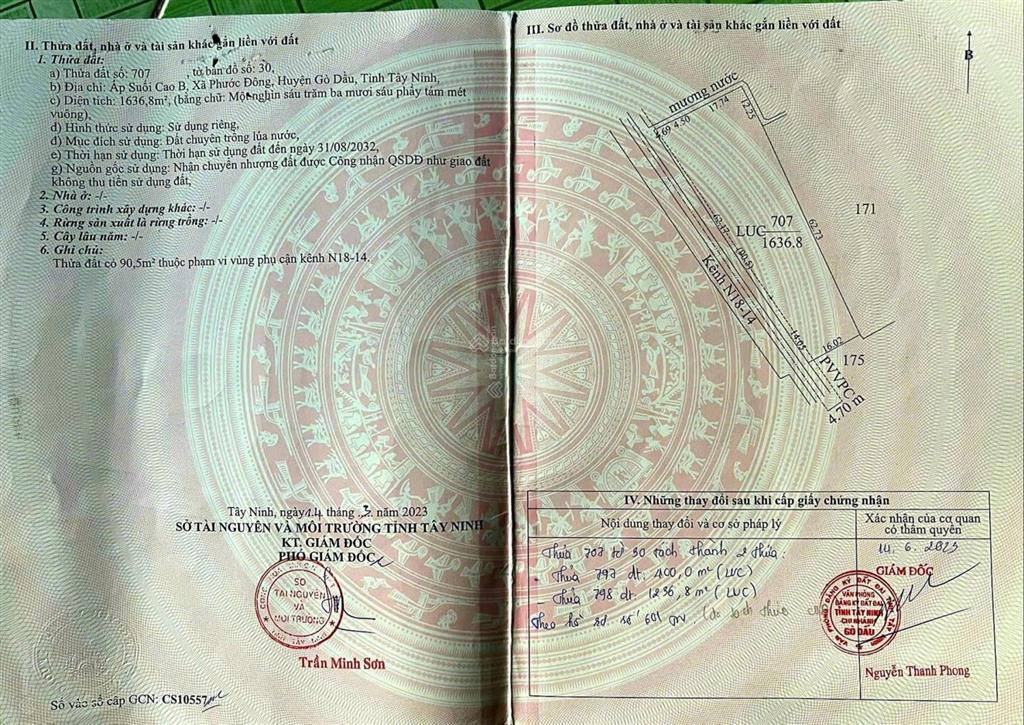 II. Thửa đất, nhà ở và tài sản khác gắn liền với đất
1. Thửa đất:
a) Thửa đất số: 707 , tờ bản đồ số: 30,
b) Địa chỉ: Ấp Suối Cao B, Xã Phước Đông, Huyện Gò Dầu, Tỉnh Tây Ninh,
c) Diện tích: 1636,8m², (bằng chữ: Một nghìn sáu trăm ba mươi sáu phẩy tám mét
vuông),
d) Hình thức sử dụng: Sử dụng riêng,
đ) Mục đích sử dụng: Đất chuyên trồng lúa nước,
e) Thời hạn sử dụng: Thời hạn sử dụng đất đến ngày 31/08/2032,
g) Nguồn gốc sử dụng: Nhận chuyển nhượng đất được Công nhận QSDĐ như giao đất
không thu tiền sử dụng đất,
2. Nhà ở: -/-
3. Công trình xây dựng khác: -/-
4. Rừng sản xuất là rừng trồng: -/-
5. Cây lâu năm: -/-
6. Ghi chú:
Thửa đất có 90,5m² thuộc phạm vi vùng phụ cận kênh N18-14.
Tây Ninh, ngày 14 tháng 3 năm 2023
SỞ TÀI NGUYÊN VÀ MÔI TRƯỜNG TỈNH TÂY NINH
KT. GIÁM ĐỐC
PHÓ GIÁM ĐỐC
SỞ
TÀI NGUYÊN
VÀ
MÔI TRƯỜNG
TỈNH TÂY NINH
Trần Minh Sơn
Số vào sổ cấp GCN: CS10557
III. Sơ đồ thửa đất, nhà ở và tài sản khác gắn liền với đất
B
mương nước
4.69 4.50 17.74 12.25
LUC 707
1636.8
171
62.12
(90.5)
62.73
Kênh N18-14
14.05
16.02
175
PVVPC
4.70 m
IV. Những thay đổi sau khi cấp giấy chứng nhận
Nội dung thay đổi và cơ sở pháp lý
Xác nhận của cơ quan
có thẩm quyền
Thửa 707 tờ 30 tách thành 2 thửa:
- Thửa 797 dt: 400,0 m² (LUC)
- Thửa 798 dt: 1236,8 m² (LUC)
Theo hồ sơ số 601
14.6.2023
GIÁM ĐỐC
VĂN PHÒNG
ĐĂNG KÝ ĐẤT ĐAI
TỈNH TÂY NINH
CHI NHÁNH
GÒ DẦU
Nguyễn Thanh Phong